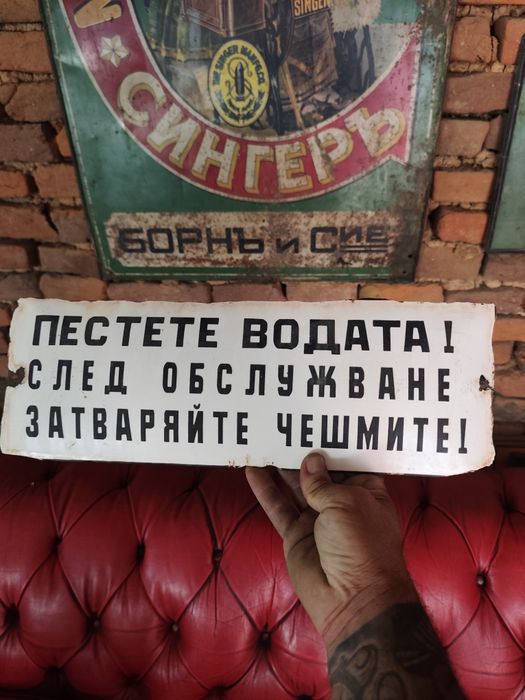 SINGER
THE SINGER MANFG. CO.
СИНГЕРЪ
БОРНЪ и Сие
ПЕСТЕТЕ ВОДАТА!
СЛЕД ОБСЛУЖВАНЕ
ЗАТВАРЯЙТЕ ЧЕШМИТЕ!